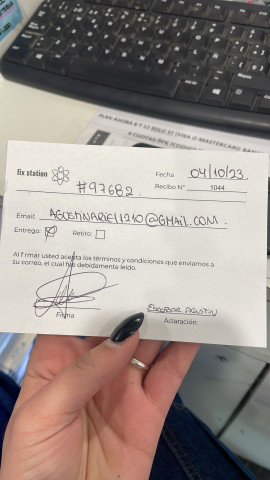 PLAN AHORA 6 Y 12 SOLO X (VISA O MASTERCARD BAN
fix station
Fecha 04/10/23.
#97682.
Recibo N° 1044
Email: AGUSTINARIEL11210@GMAIL.COM.
Entrego: Retiro:
Al firmar usted acepta los términos y condiciones que enviamos a
su correo, el cual fue debidamente leído.
ESCOBAR AGUSTIN
Firma
Aclaración